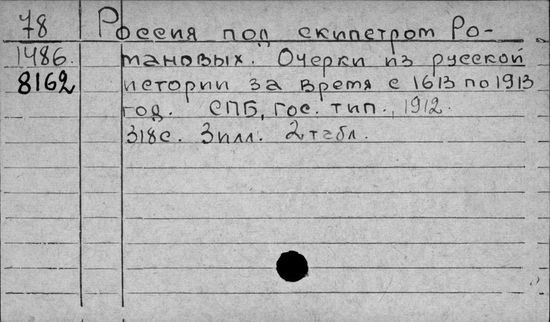 78 Россия под скипетром Ро-
1486. мановых. Очерки из русской
8162 истории за время с 1613 по 1913
год. СПБ, Гос. тип., 1912.
318с. 3 илл. 2 табл.